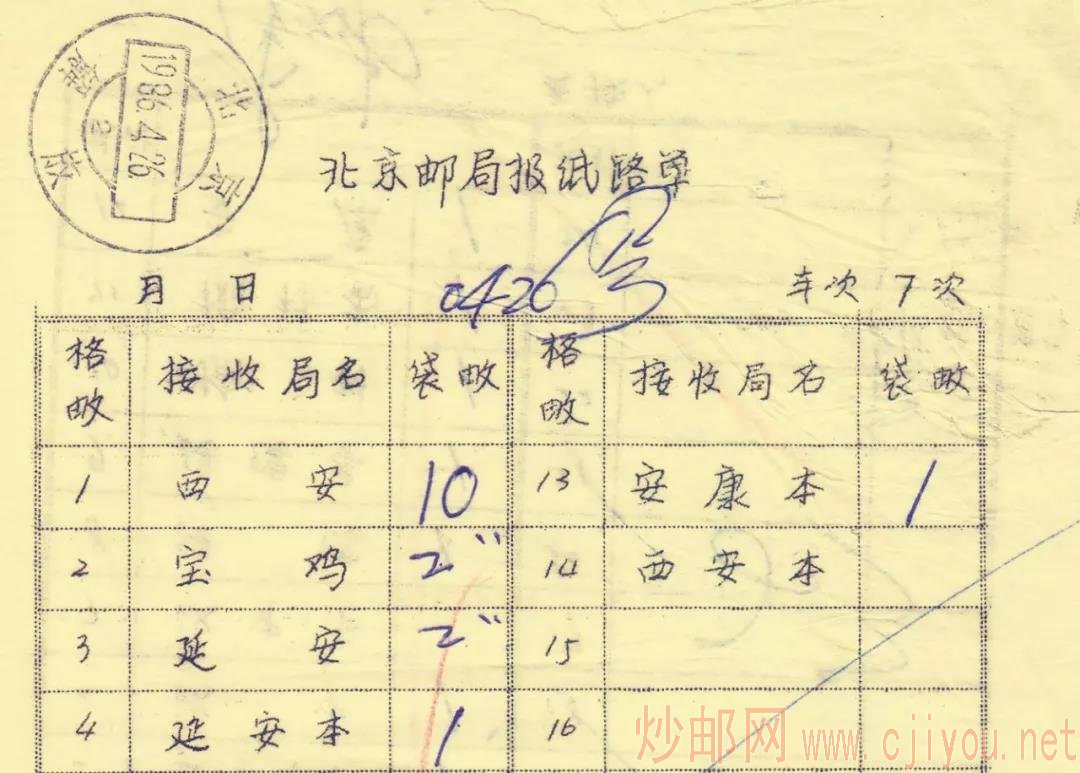 北京
1986.4.26.
北京邮局报纸路单
月 日 0426 12号 车次 7次
格畋 接收局名 袋畋 格畋 接收局名 袋畋
1 西安 10 13 安康本 1
2 宝鸡 2" 14 西安本
3 延安 2" 15
4 延安本 1 16
炒邮网 www.cjiyou.net